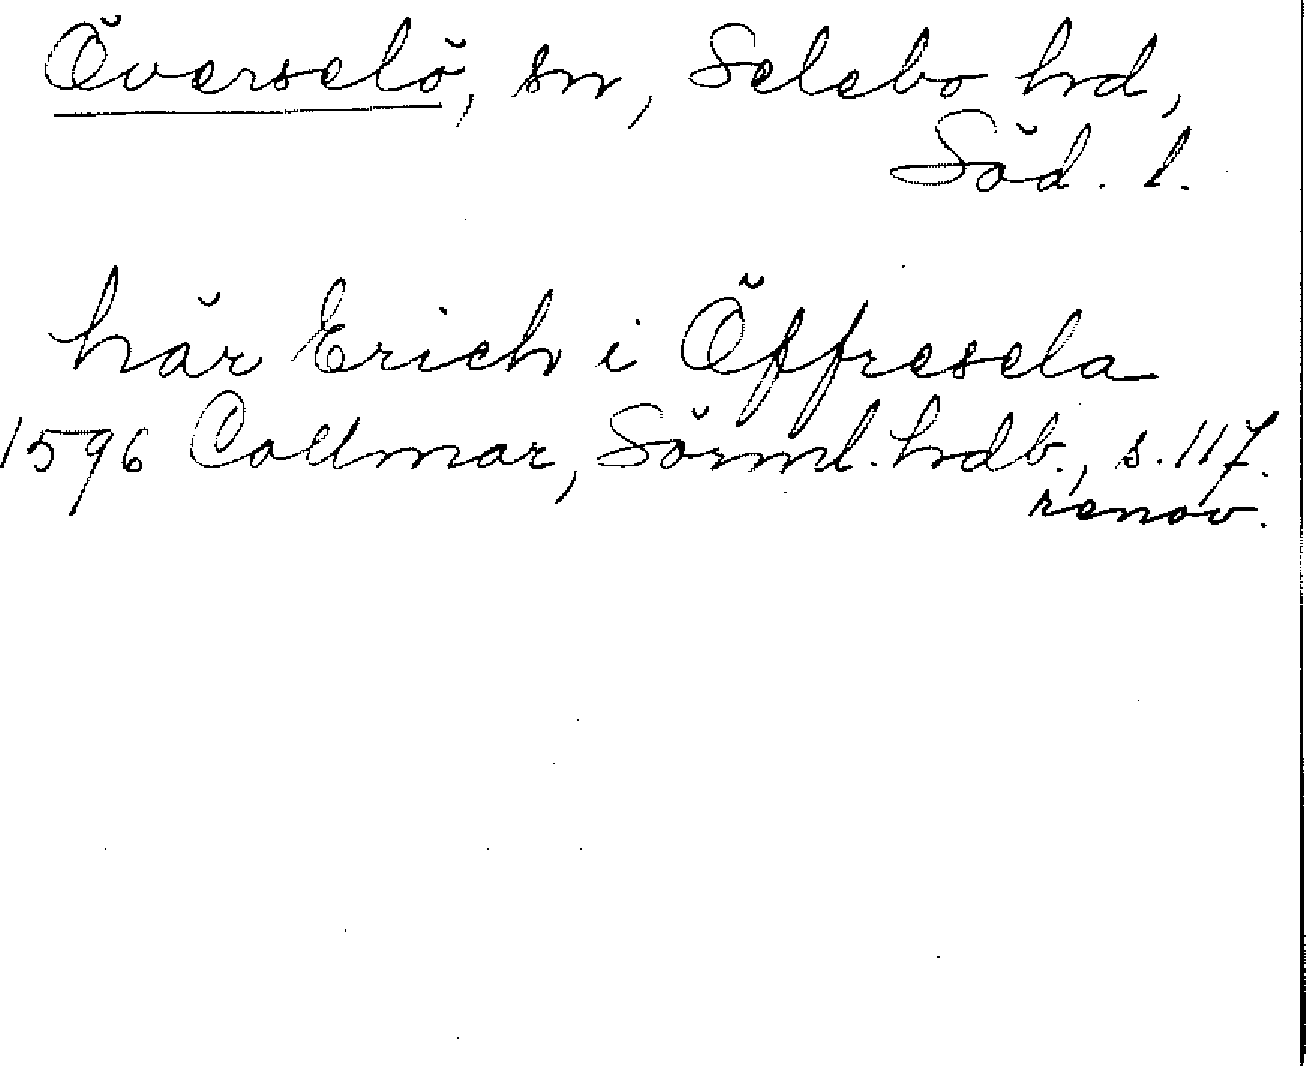 Överselö, sn, Selebo hd,
Söd. l.
här Erich i Öffresela
1596 Collmar, Sörml. hdb., s. 117.
renov.